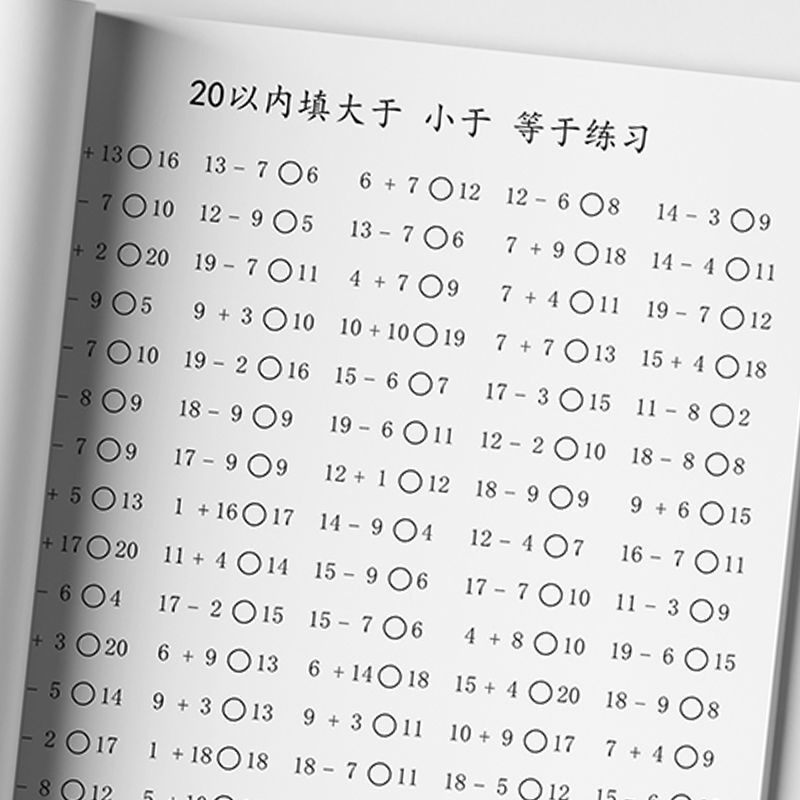 20以内填大于 小于 等于练习
+ 13○16 13 - 7 ○6 6 + 7 ○12 12 - 6 ○8 14 - 3 ○9
- 7 ○10 12 - 9 ○5 13 - 7 ○6 7 + 9 ○18 14 - 4 ○11
+ 2 ○20 19 - 7 ○11 4 + 7 ○9 7 + 4 ○11 19 - 7 ○12
- 9 ○5 9 + 3 ○10 10 + 10○19 7 + 7 ○13 15 + 4 ○18
- 7 ○10 19 - 2 ○16 15 - 6 ○7 17 - 3 ○15 11 - 8 ○2
- 8 ○9 18 - 9 ○9 19 - 6 ○11 12 - 2 ○10 18 - 8 ○8
- 7 ○9 17 - 9 ○9 12 + 1 ○12 18 - 9 ○9 9 + 6 ○15
+ 5 ○13 1 + 16○17 14 - 9 ○4 12 - 4 ○7 16 - 7 ○11
+ 17○20 11 + 4 ○14 15 - 9 ○6 17 - 7 ○10 11 - 3 ○9
- 6 ○4 17 - 2 ○15 15 - 7 ○6 4 + 8 ○10 19 - 6 ○15
+ 3 ○20 6 + 9 ○13 6 + 14○18 15 + 4 ○20 18 - 9 ○8
- 5 ○14 9 + 3 ○13 9 + 3 ○11 10 + 9 ○17 7 + 4 ○9
- 2 ○17 1 + 18○18 18 - 7 ○11 18 - 5 ○12
- 8 ○12